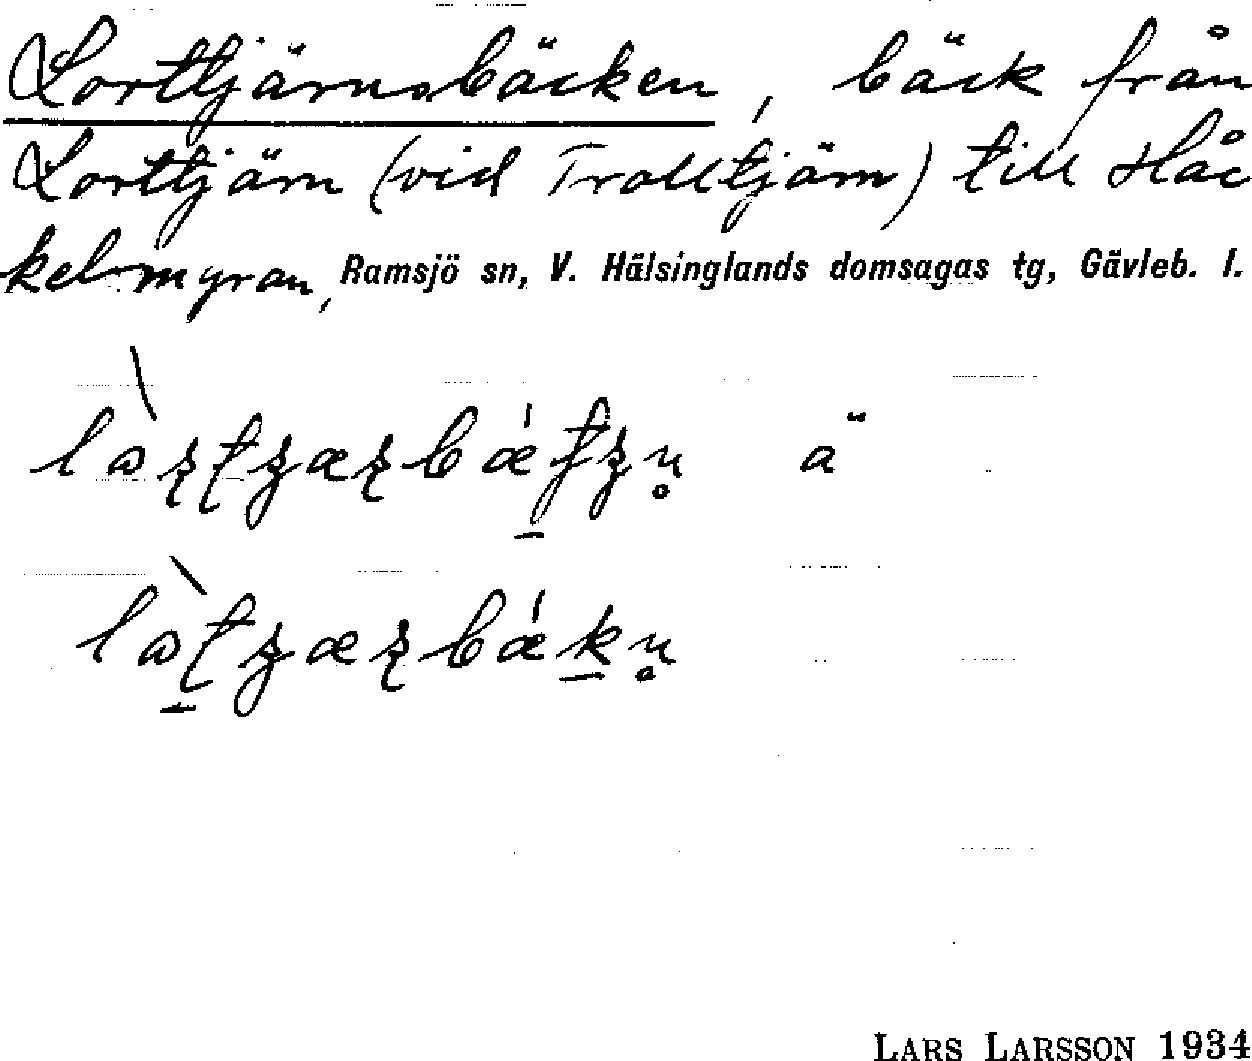 Lorttjärnsbäcken, bäck från
Lorttjärn (vid Trolltjärn) till Håc
kelmyran, Ramsjö sn, V. Hälsinglands domsagas tg, Gävleb. l.
ä
LARS LARSSON 1934